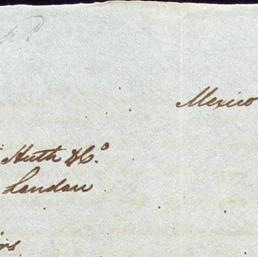 Mexico
Huth & Co
London